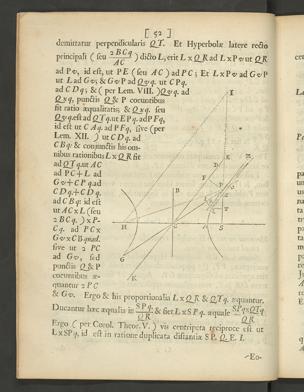 [ 52 ]
demittatur perpendicularis QT. Et Hyperbolæ latere recto
principali (seu 2BCq / AC) dicto L, erit LxQR ad LxPv ut QR
ad Pv, id est, ut PE (seu AC) ad PC; Et LxPv ad GvP
ut L ad Gv; & GvP ad Qvq. ut CPq.
ad CDq; & (per Lem. VIII.) Qvq. ad
Qxq, punctis Q & P coeuntibus
fit ratio æqualitatis; & Qxq. seu
Qvq. est ad QTq. ut EPq. ad PFq,
id est ut CAq. ad PFq, sive (per
Lem. XII.) ut CDq. ad
CBq: & conjunctis his om-
nibus rationibus LxQR fit
ad QTq. ut AC
ad PC + L ad
Gv + CPq ad
CDq + CDq.
ad CBq: id est
ut ACxL (seu
2BCq.) xP-
Cq. ad PCx
GvxCBquad.
sive ut 2PC
ad Gv, sed
punctis Q & P
coeuntibus æ-
quantur 2PC
& Gv. Ergo & his proportionalia LxQR & QTq. æquantur.
Ducantur hæc æqualia in SPq. / QR & fiet LxSPq. æquale SPqxQTq. / QR
Ergo (per Corol. Theor. V.) vis centripeta reciproce est ut
LxSPq, id est in ratione duplicata distantiæ SP, Q. E. I.
Eo-
I
D
E
N
F
B
R
P
Q
T
H
C
A
S
G
K